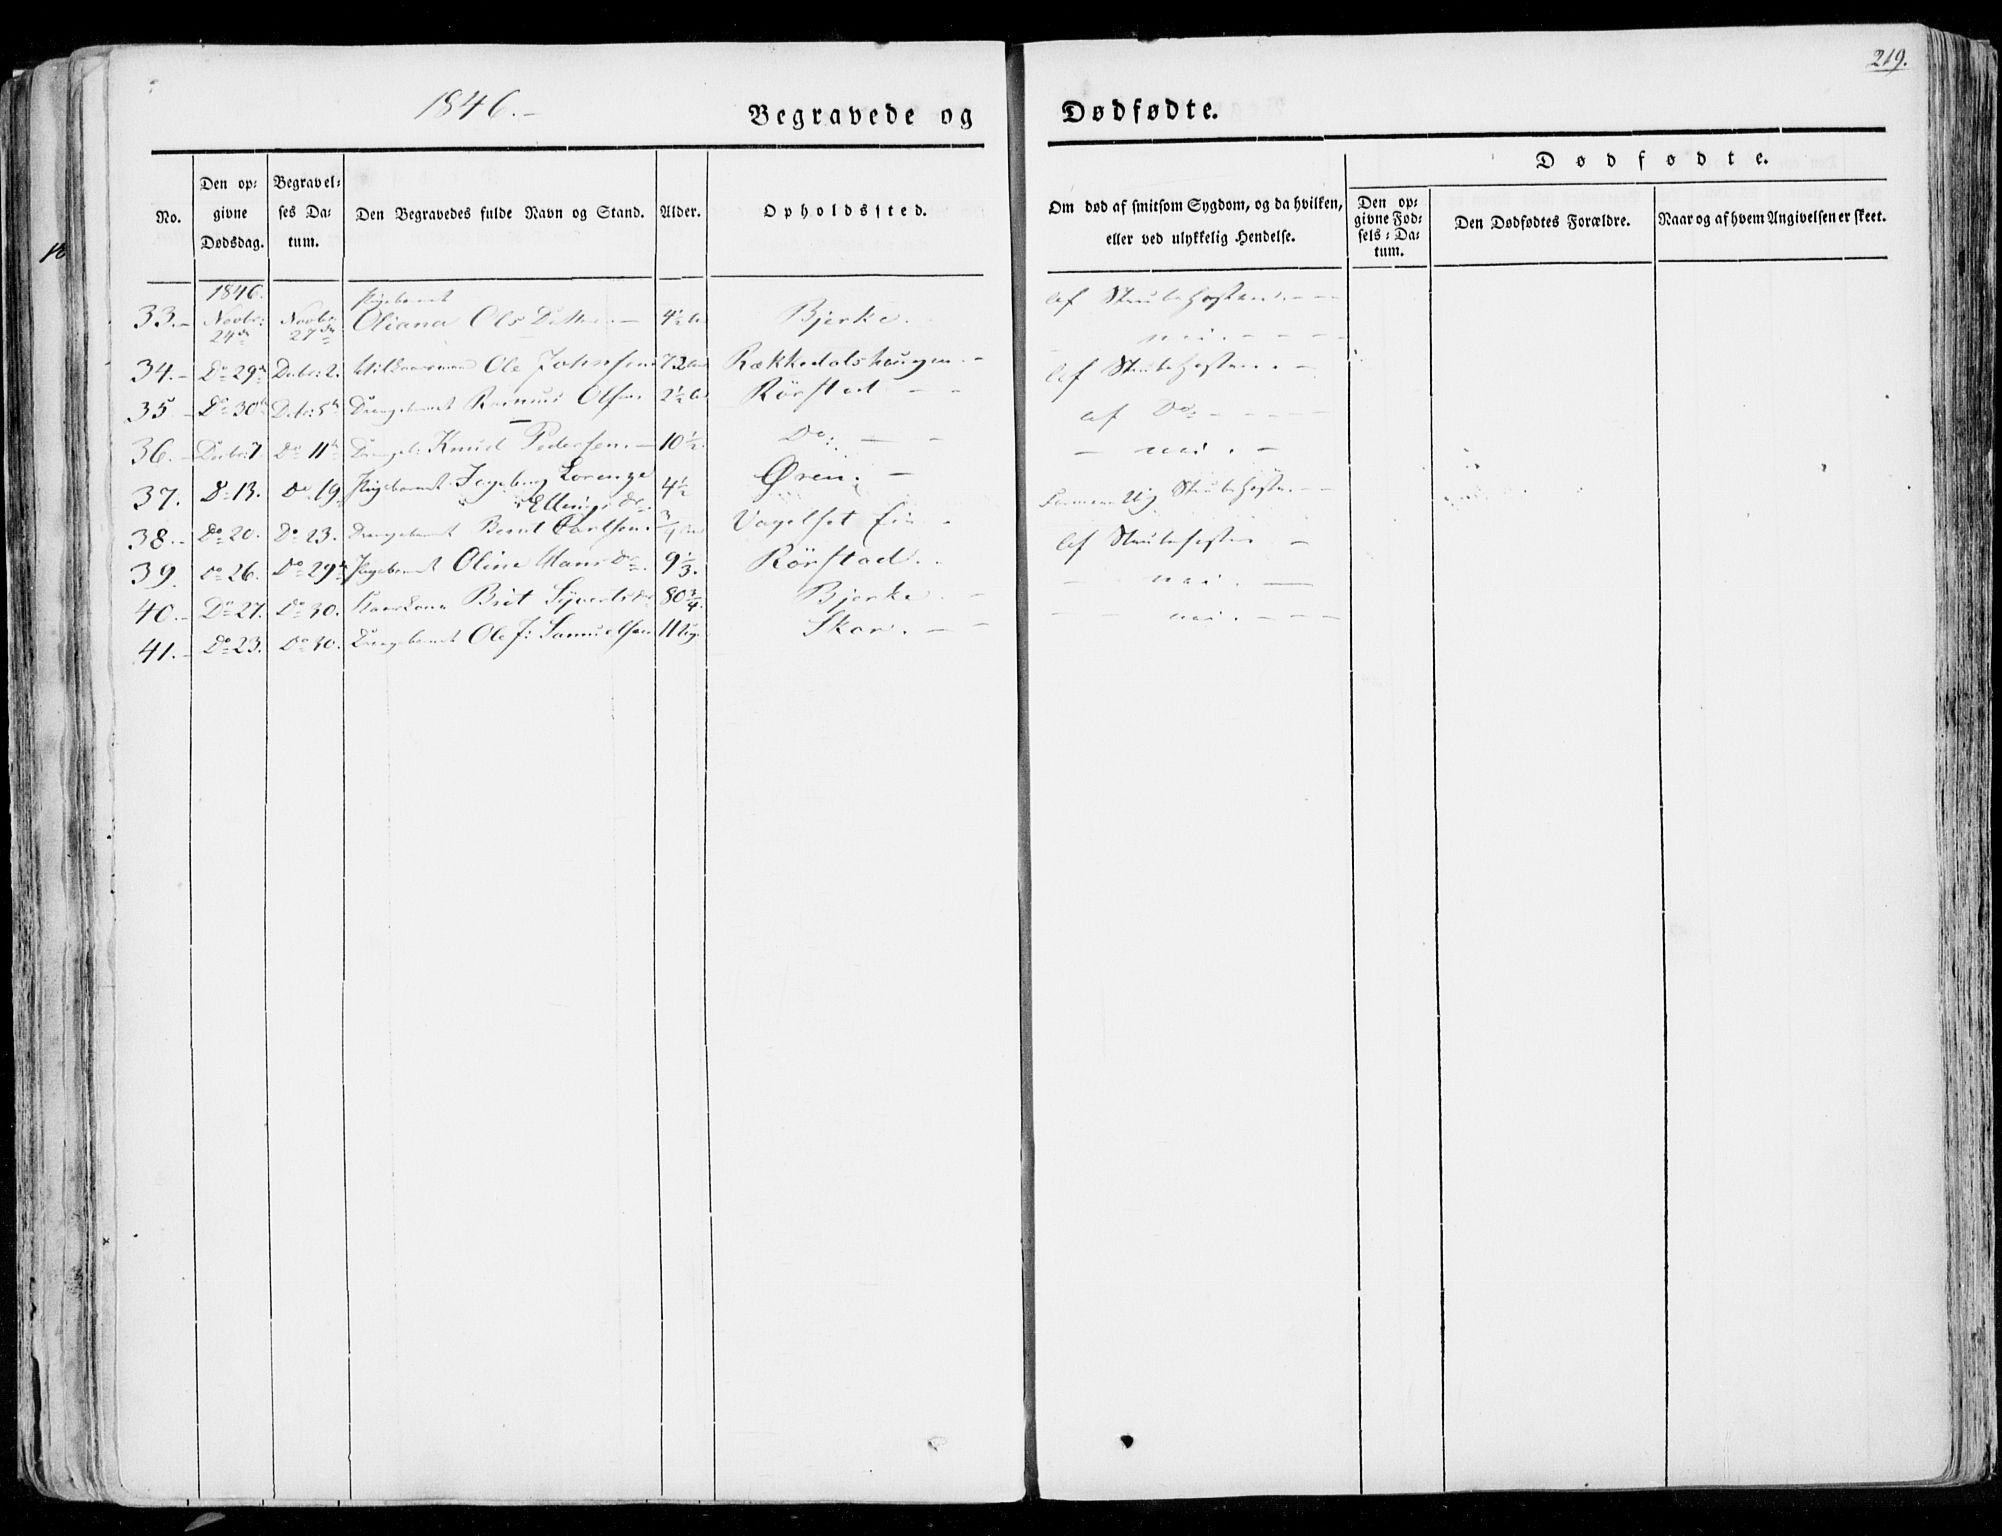 219.
1846.-
Begravede og Dødfødte.
No.
Den op=
givne
Dødsdag.
Begravel=
ses Da=
tum.
Den Begravedes fulde Navn og Stand.
Alder.
Opholdssted.
Om død af smitsom Sygdom, og da hvilken,
eller ved ulykkelig Hendelse.
Dødfødte.
Den op=
givne Fød=
sels=Da=
tum.
Den Dødfødtes Forældre.
Naar og af hvem Angivelsen er skeet.
18
1846.
33.- Novbr: 24de Novbr 27de Pigebarnet Oliana Ols Datter.- 4½ Bjerke. af Strubehosten.---
34.- Do 29de Decbr: 2. Ole Johnsen 72 Rækkedalshaugen.- nei.----
35- Do 30te Decbr: 5te Drengebarnet Rasmus Olsen 2½ Rörstad -- af Strubehosten.-
36.- Decbr: 7 Do 11te Drengeb: Knud Pedersen.- 10½. Do: -- af Do:-----
37. Do 13. Do 19. Pigebarnet Ingeborg Lorenze Ellings Dr. 4½ Øren.- - nei.-
38.- Do 20. Do 23. Drengebarnet Bernt Carlsen. Vagelset Strubehosten.--
39. Do 26. Do 29de Pigebarnet Oline Hans Dr. 9⅓. Rörstad.. af Strubehosten -
40.- Do 27. Do 30. Brit Syverts Dr 80¾. Bjerke.- - nei.-
41.- Do 23. Do 30. Drengebarnet Ole J: Samuelsen 11 Ug. Skar.-- -- nei.---